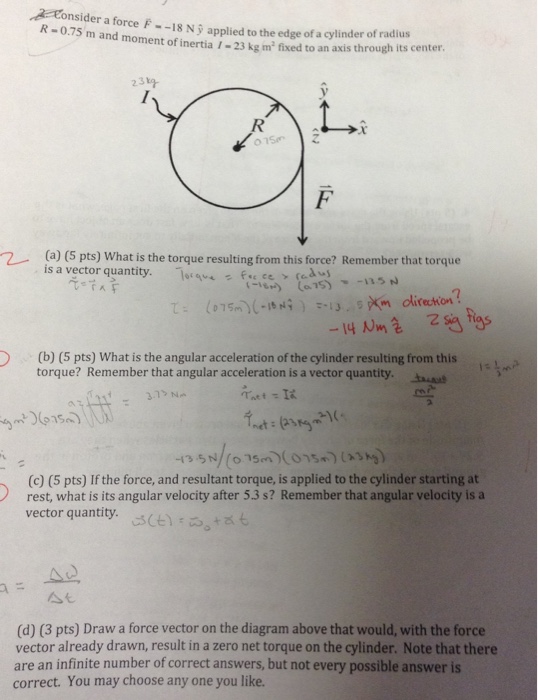 2. Consider a force F⃗ = -18 N ŷ applied to the edge of a cylinder of radius
R = 0.75 m and moment of inertia I = 23 kg m² fixed to an axis through its center.
23 kg
I
R
0.75m
ŷ
x̂
ẑ
F⃗
2
(a) (5 pts) What is the torque resulting from this force? Remember that torque
is a vector quantity.
Torque = force × radius
(-18N) (0.75) = -13.5 N
τ⃗ = r⃗ ∧ F⃗
τ = (0.75m)(-18Nŷ) = -13.5
direction?
-14 Nm ẑ 2 sig figs
(b) (5 pts) What is the angular acceleration of the cylinder resulting from this
torque? Remember that angular acceleration is a vector quantity.
mr²/2
= 3.75 Nm
τ⃗net = Iα⃗
kgm²)(0.75m)
τ⃗net = (23kgm²)(
-13.5N/(0.75m)(0.75m)(23kg)
=
(c) (5 pts) If the force, and resultant torque, is applied to the cylinder starting at
rest, what is its angular velocity after 5.3 s? Remember that angular velocity is a
vector quantity.
ω⃗(t) = ω⃗₀ + αt
a = Δω/Δt
(d) (3 pts) Draw a force vector on the diagram above that would, with the force
vector already drawn, result in a zero net torque on the cylinder. Note that there
are an infinite number of correct answers, but not every possible answer is
correct. You may choose any one you like.